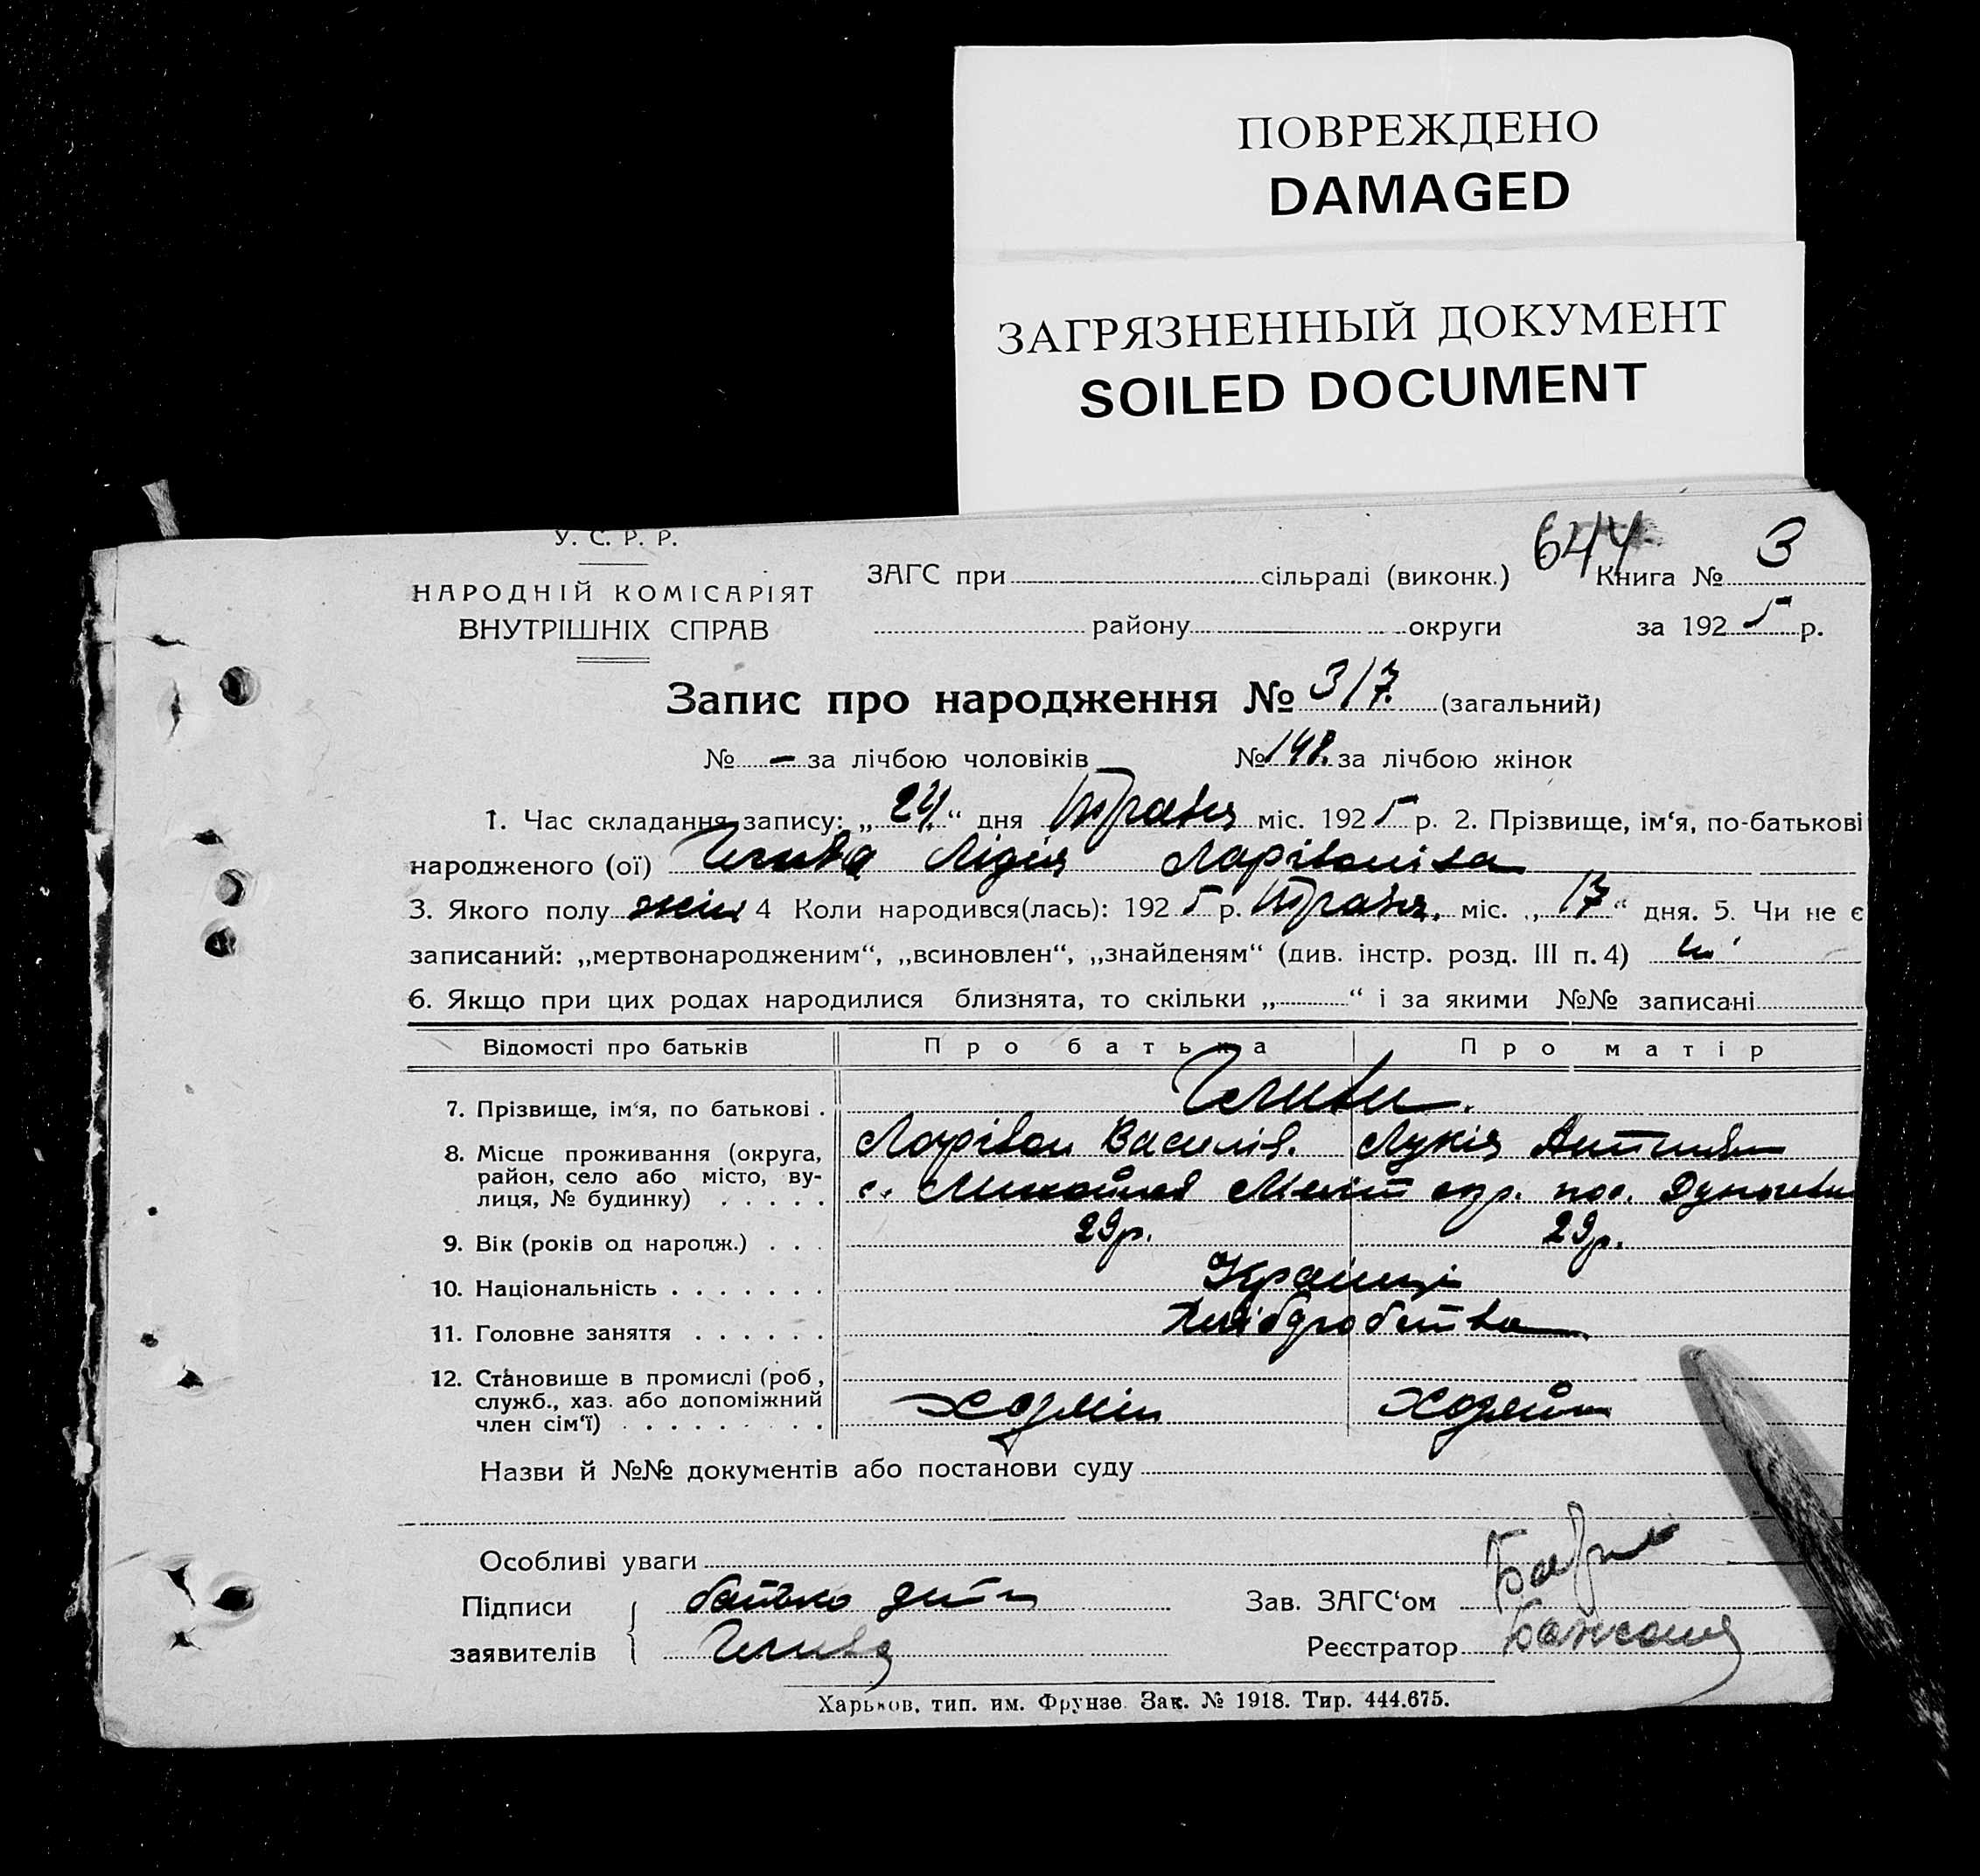 ПОВРЕЖДЕНО
DAMAGED
ЗАГРЯЗНЕННЫЙ ДОКУМЕНТ
SOILED DOCUMENT
У. С. Р. Р.
НАРОДНІЙ КОМІСАРІЯТ
ВНУТРІШНІХ СПРАВ
644
ЗАГС при сільраді (виконк.) Книга № 3
району округи за 1925 р.
Запис про народження № 317. (загальний)
№ - за лічбою чоловіків № 148. за лічбою жінок
1. Час складання запису: „24“ дня Травня міс. 1925 р. 2. Прізвище, ім‘я, по-батькові
народженого (ої) Лідія Ларівонівна
3. Якого полу жін 4 Коли народився(лась): 1925 р. Травня міс. „17“ дня. 5. Чи не є
записаний: „мертвонародженим“, „всиновлен“, „знайденям“ (див. інстр. розд. III п. 4) ні
6. Якщо при цих родах народилися близнята, то скільки „ “ і за якими №№ записані
Відомості про батьків Про батька Про матір
7. Прізвище, ім‘я, по батькові .
8. Місце проживання (округа, Ларівон Василів. Лукія
район, село або місто, ву-
лиця, № будинку) . . . . . с. Меліт окр.
9. Вік (років од народж.) . . . 29р. 29р.
10. Національність . . . . . . . Українці
11. Головне заняття . . . . . . Хліборобство
12. Становище в промислі (роб.,
служб., хаз. або допоміжний Хозяїн Хозяйка
член сім‘ї) . . . . . . . .
Назви й №№ документів або постанови суду
Особливі уваги
Підписи батько дит Зав. ЗАГС‘ом
заявителів Реєстратор
Харьков, тип. им. Фрунзе. Зак. № 1918. Тир. 444.675.